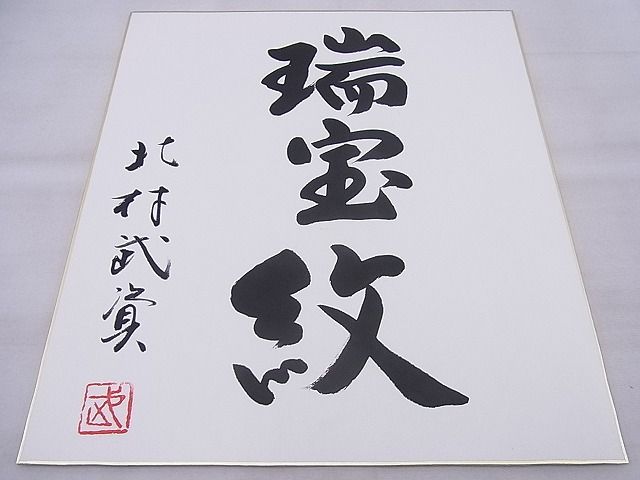 瑞宝紋
北村武資
武